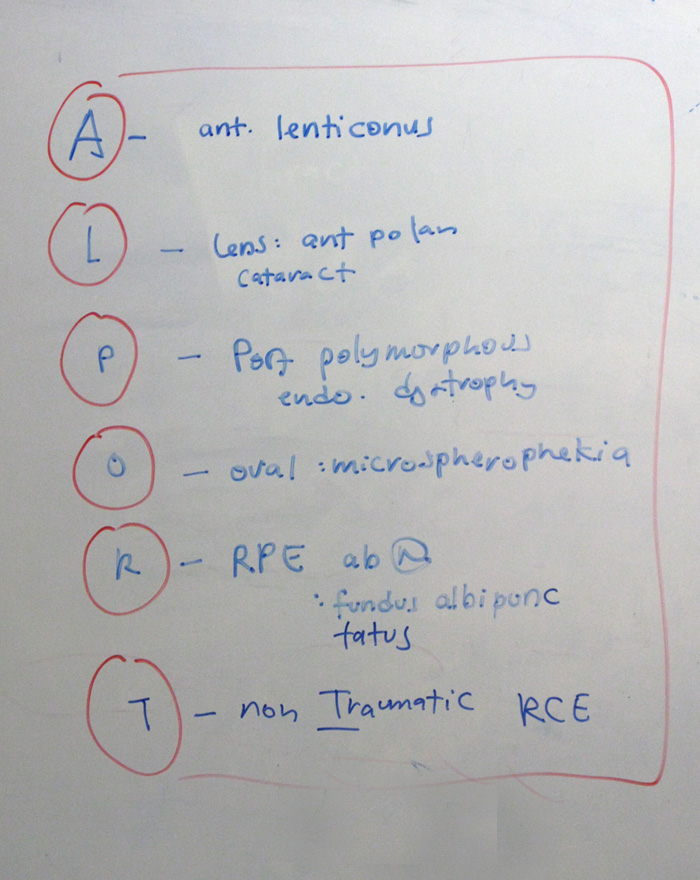 A - ant. lenticonus
L - Lens: ant polar
cataract
P - Post polymorphous
endo. dystrophy
O - oval : microspherophekia
R - RPE ab N
: fundus albipunc
tatus
T - non Traumatic RCE